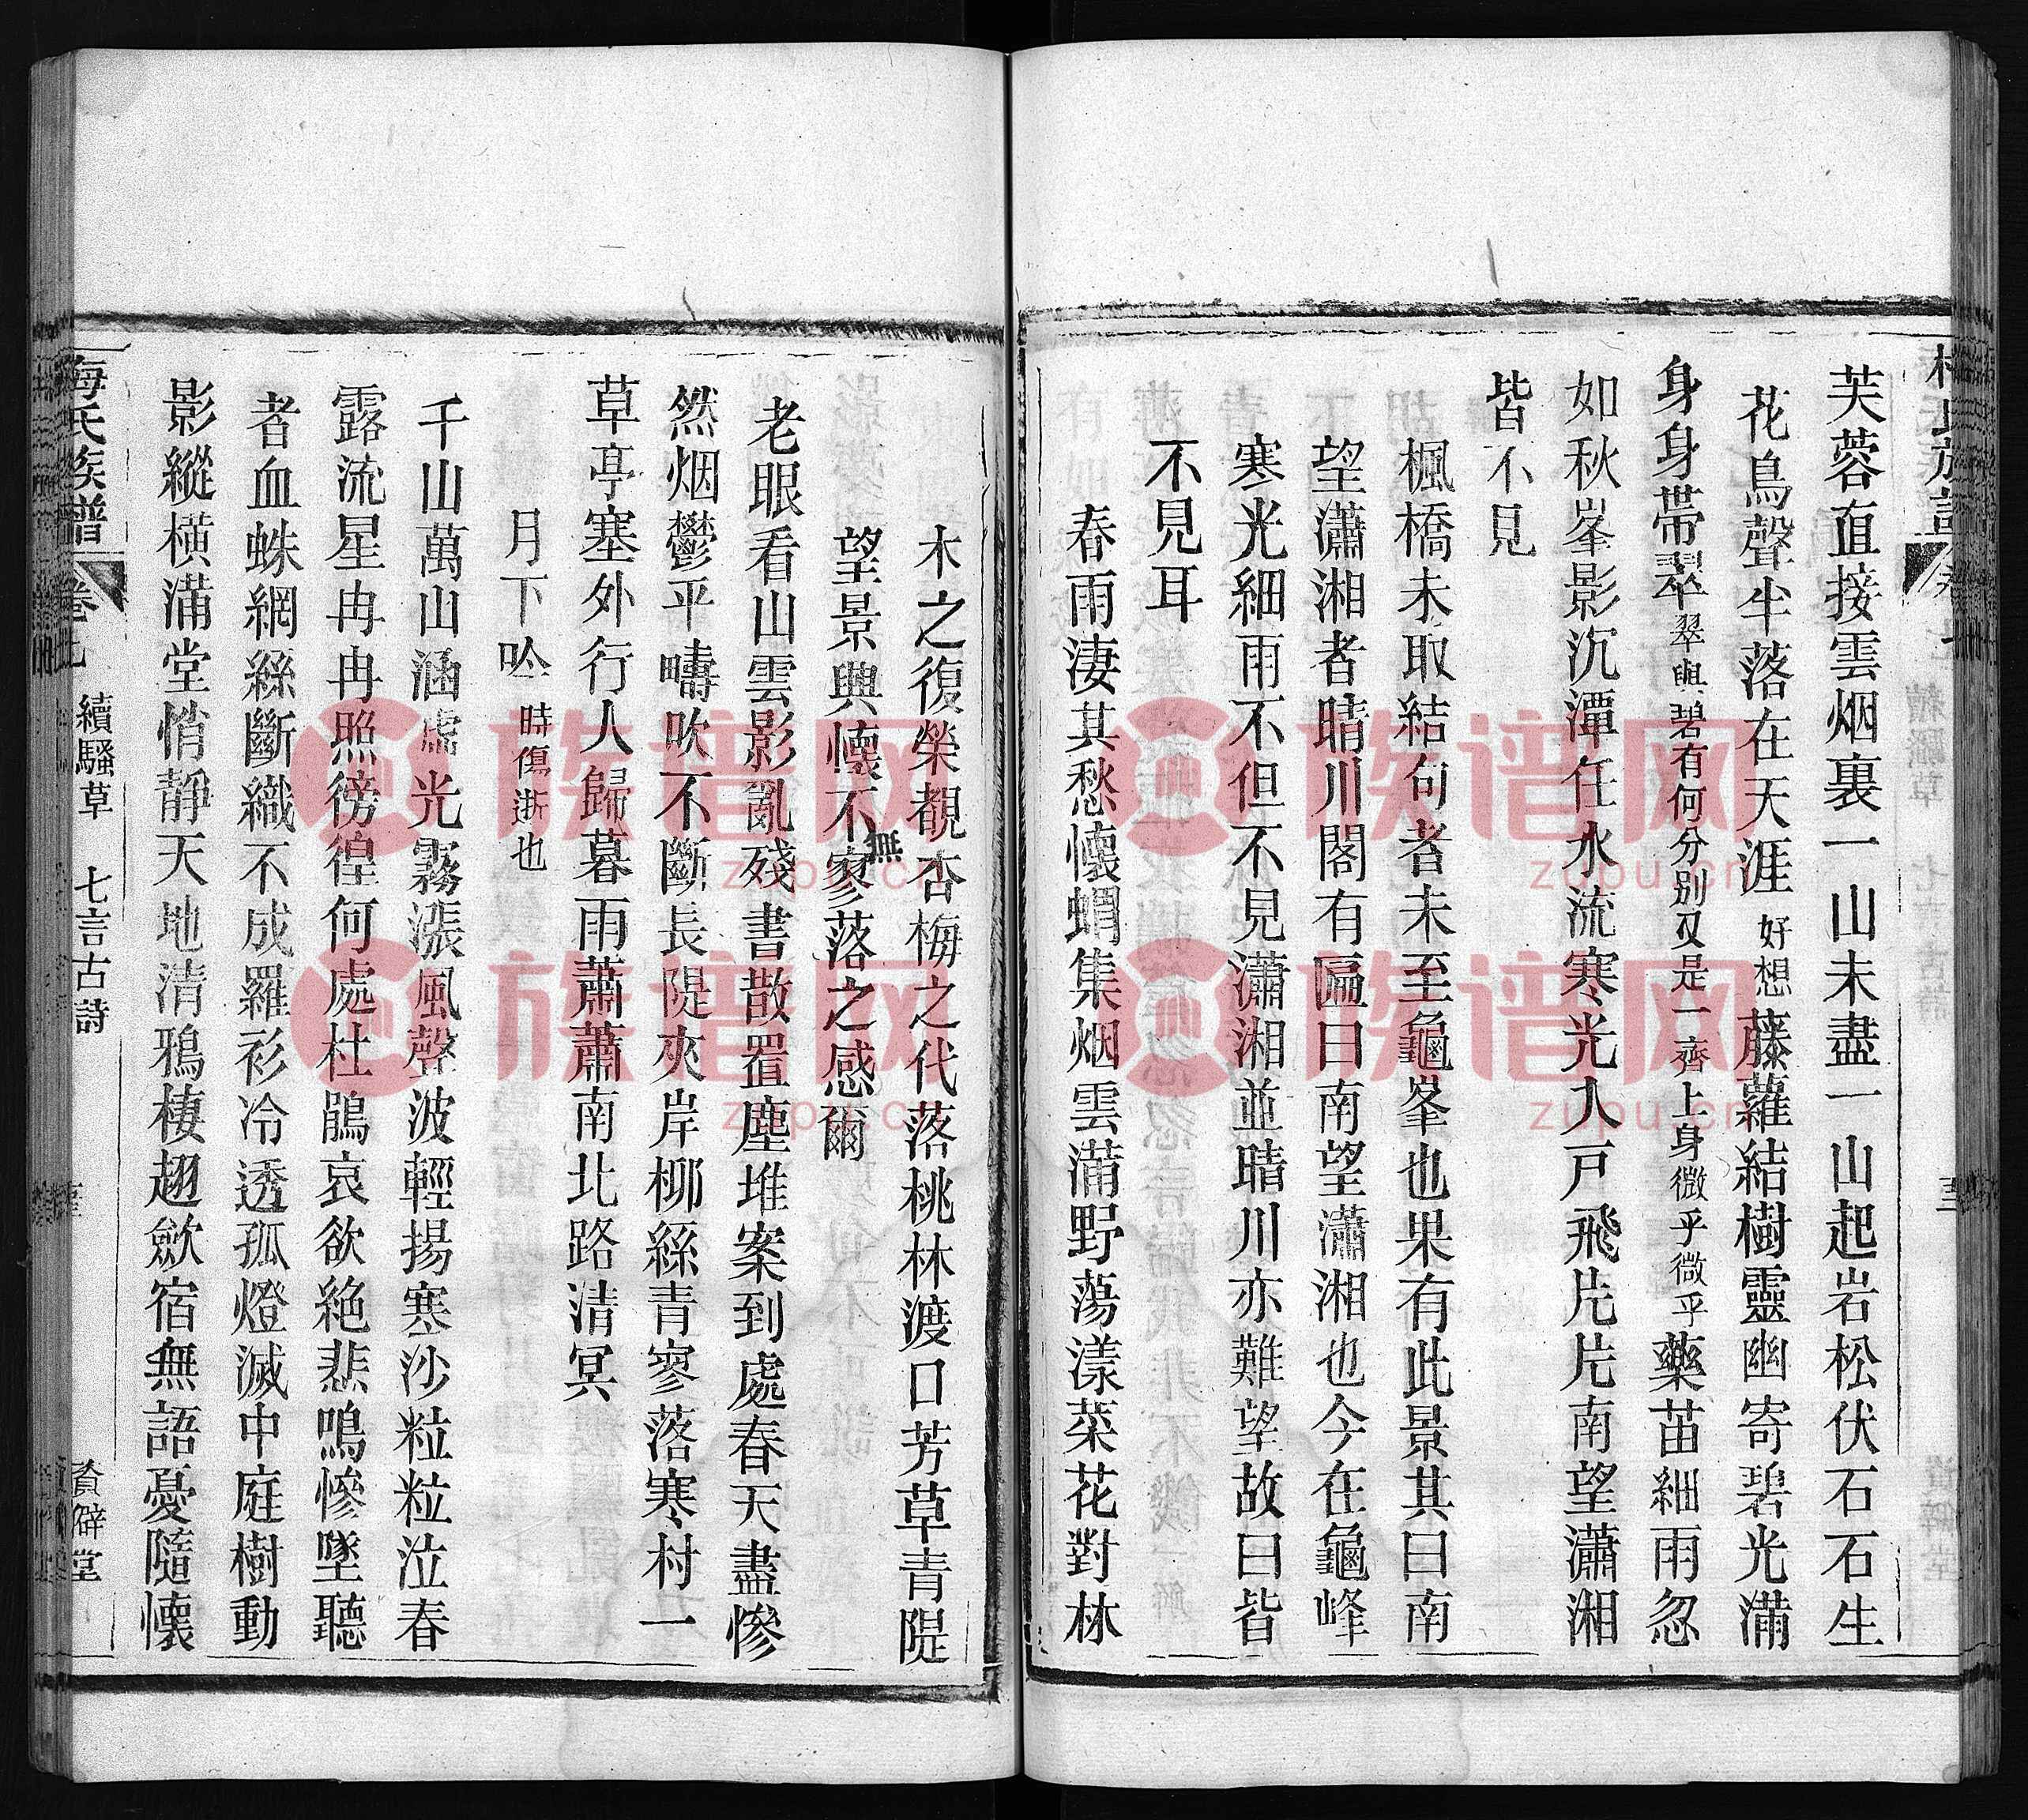 芙蓉直接雲烟裏一山未盡一山起岩松伏石石生
花鳥聲半落在天涯好想藤蘿結樹靈幽寄碧光滿
身身帶翠翠與碧有何分別又是一齊上身微乎微乎藥苗細雨忽
如秋峯影沉潭任水流寒光入戸飛片片南望瀟湘
皆不見
楓橋未取結句者未至龜峯也果有此景其曰南
望瀟湘者晴川閣有匾曰南望瀟湘也今在龜峰
寒光細雨不但不見瀟湘並晴川亦難望故曰皆
不見耳
春雨淒其愁懷蝟集烟雲滿野蕩漾菜花對林
木之復榮覩杏梅之代落桃林渡口芳草青隄
望景興懷不無寥落之感爾
老眼看山雲影亂殘書散置塵堆案到處春天盡慘
然烟鬱平疇吹不斷長隄夾岸柳絲青寥落寒村一
草亭塞外行人歸暮雨蕭蕭南北路清冥
月下吟時傷逝也
千山萬山涵虛光霧漲風聲波輕揚寒沙粒粒泣春
露流星冉冉照徬徨何處杜鵑哀欲絶悲鳴慘墜聽
者血蛛網絲斷織不成羅衫冷透孤燈滅中庭樹動
影縱橫滿堂悄靜天地清鴉棲翅歛宿無語憂隨懷
梅氏族譜 卷七 續騷草 七言古詩